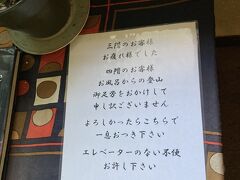 三階のお客様
お疲れ様でした
四階のお客様
お風呂からの登山
御足労をおかけして
申し訳ございません
よろしかったらこちらで
一息おつき下さい
エレベーターのない不便
お許し下さい